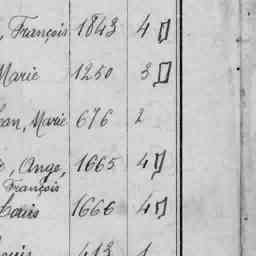 , François 1843 4
Marie 1250 3
ean, Marie 676 2
, Ange, 1665 4
François
Louis 1666 4
ouis 413 1